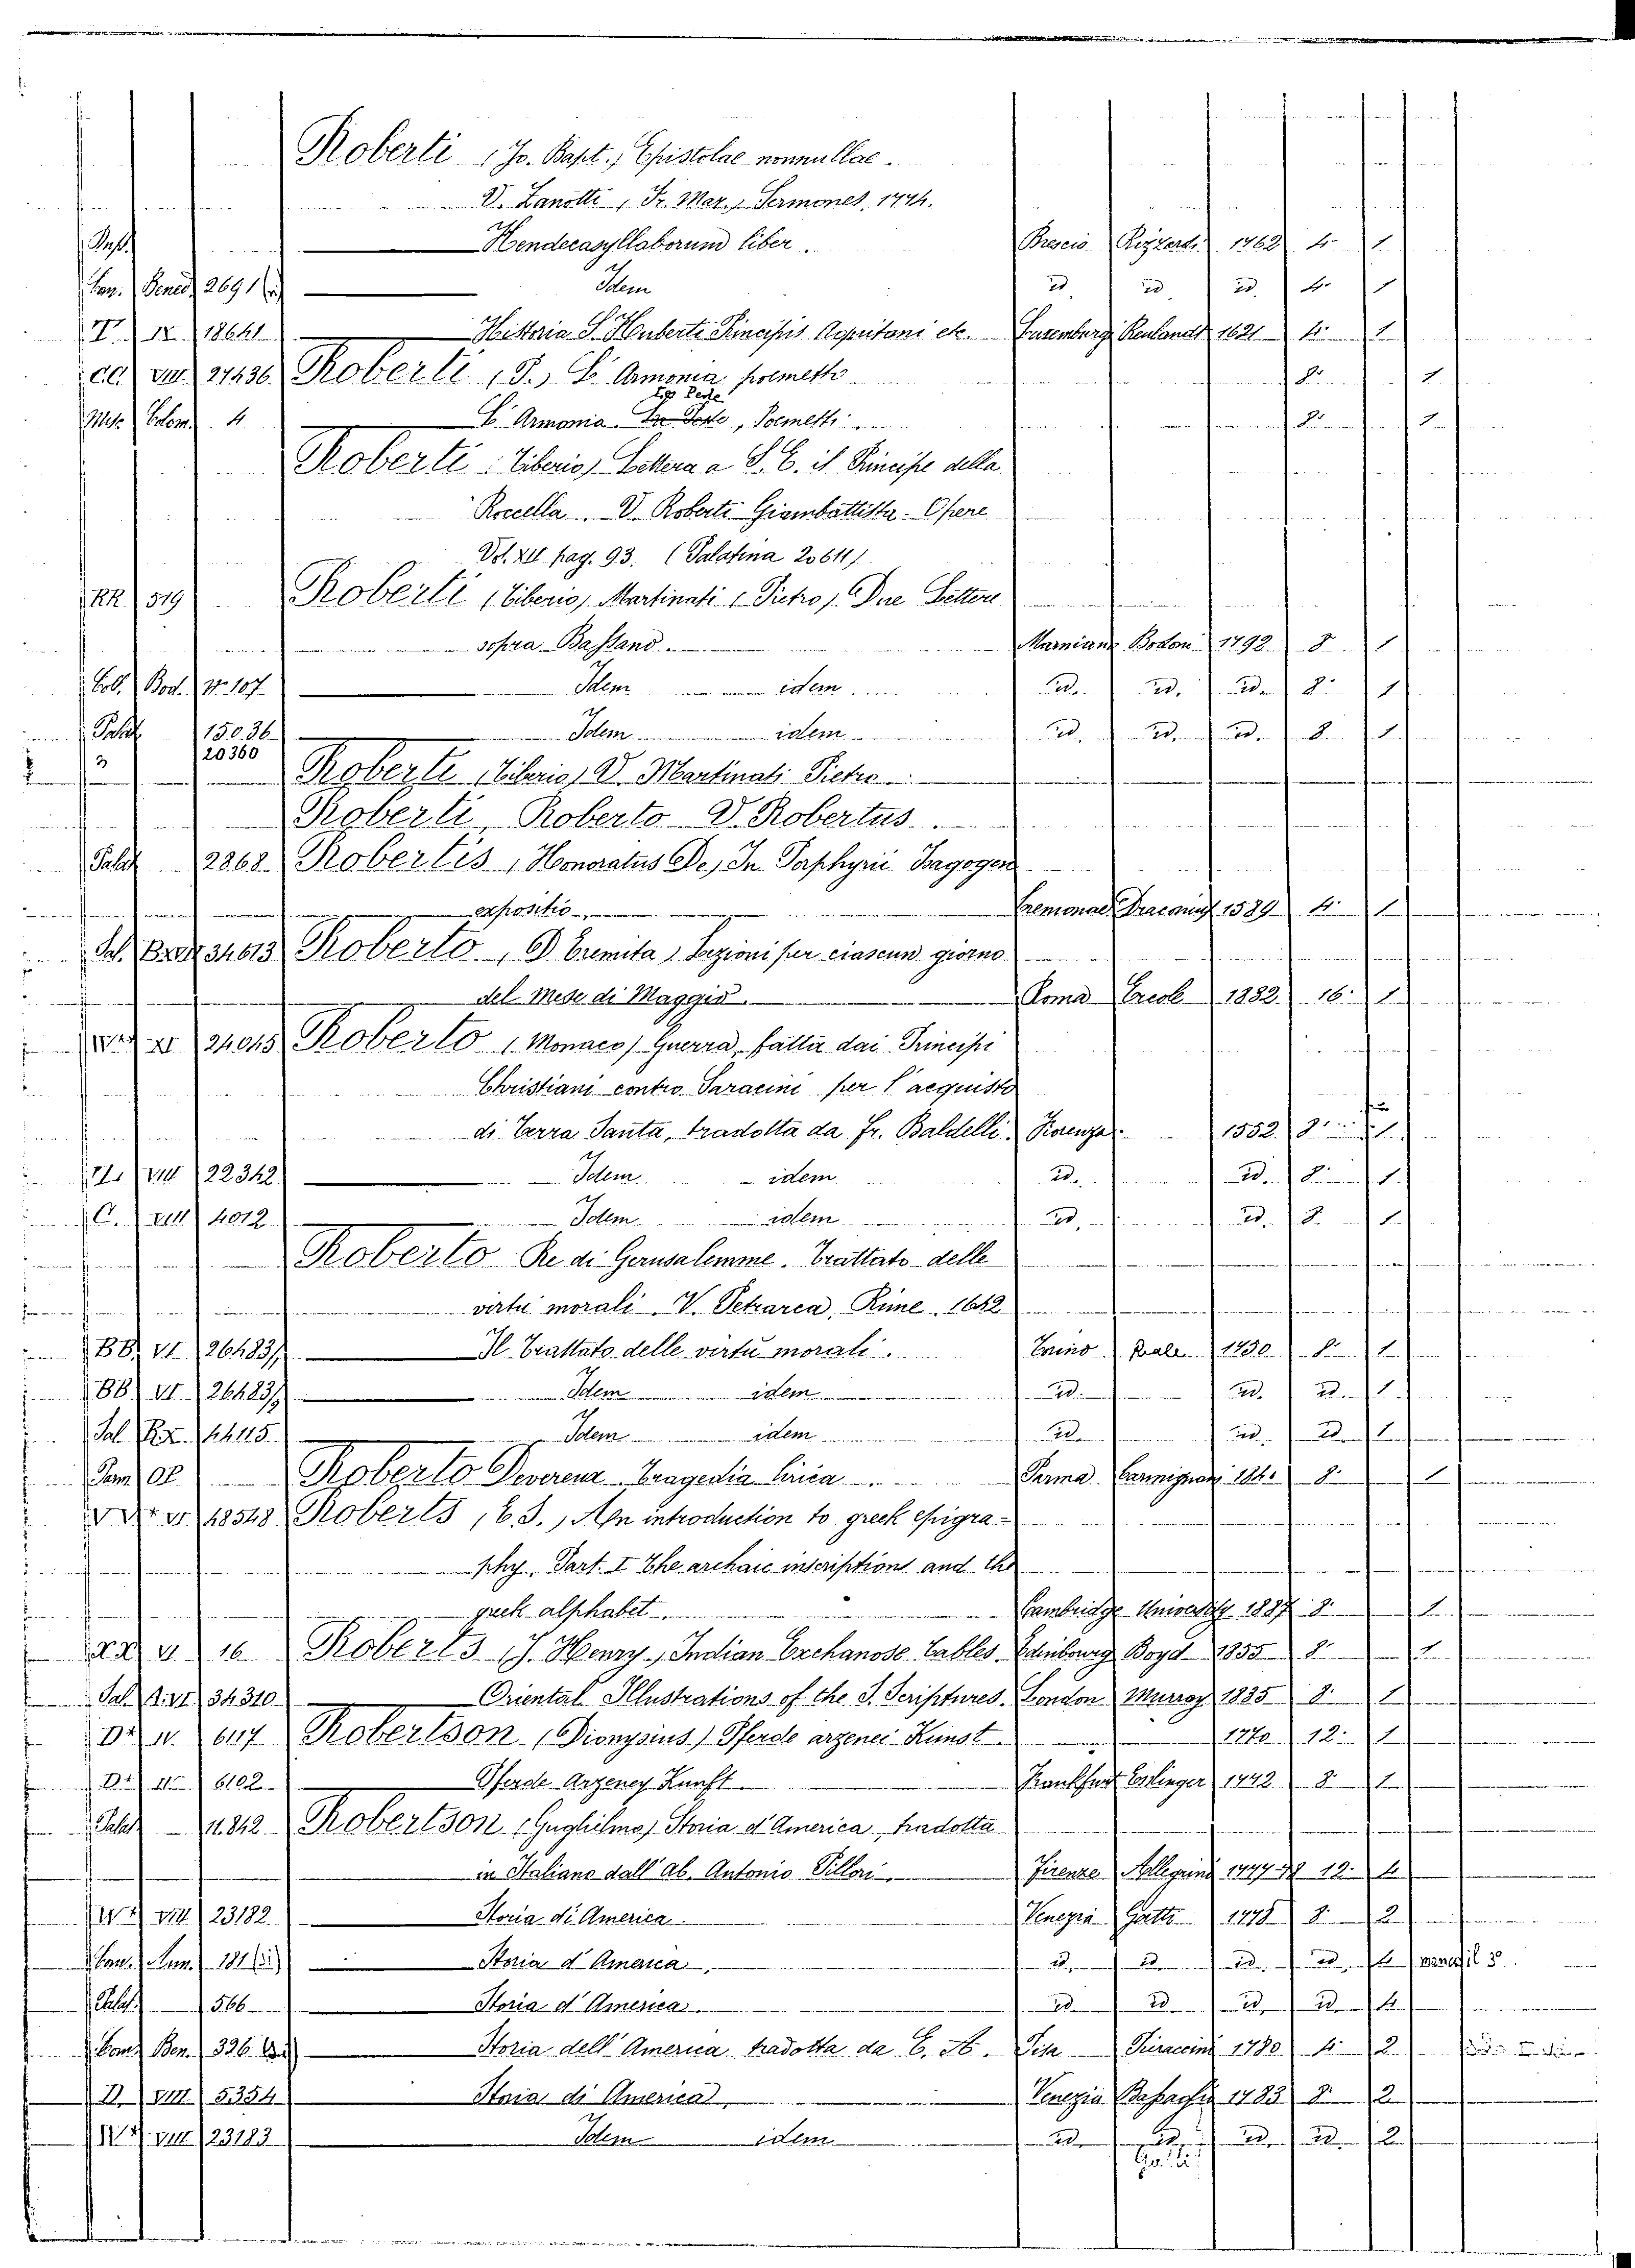 Roberti (Jo. Bapt.) Epistolae nonnullae.
V. Zanotti, Fr. Mar., Sermones, 1774.
Hendecasyllaborum liber. Brescia Rizzardi 1762 4. 1
Bened. 2691 Idem id. id. id. 4. 1
T. IX 18641 Historia S. Huberti Principis Aquitani etc. Luxemburgi 1621 4. 1
CC VIII 27436 Roberti, S., L'Armonia poemetto 8. 1
Le Perle
Colom. 4 L'Armonia. Poemetti 8. 1
Roberti (Tiberio) Lettera a S. E. il Principe della
Roccella. V. Roberti Giambattista. Opere
Vol. XII pag. 93. (Palatina 20611)
RR. 519 Roberti (Tiberio, Martinati (Pietro), Due Lettere
sopra Bassano Bodoni 1792 8. 1
Coll. Bod. N. 107 Idem idem id. id. id. 8. 1
Palat. 15036 Idem idem id. id. id. 8. 1
2 20360
Roberti (Tiberio) V. Martinati Pietro
Roberti, Roberto V. Robertus.
Palat. 2868 Robertis (Honoratus De) In Porphyrii Isagogen
expositio Cremonae Draconius 1589 4. 1
34613 Roberto, D. Eremita, Lezioni per ciascun giorno
del Mese di Maggio. Roma 1882 16. 1
24015 Roberto (Monaco) Guerra, fatta dai Principi
Christiani contro Saracini per l'acquisto
di Terra Santa, tradotta da Fr. Baldelli. Firenze 1552 8. 1
VIII 22342 Idem idem id. id. 8. 1
C. XIII 4012 Idem idem id. id. 8. 1
Roberto Re di Gerusalemme. Trattato delle
virtù morali. V. Petrarca, Rime. 1642
BB. VI 26483/ Il Trattato delle virtù morali. Torino Reale 1750 8. 1
BB. VI 26483/ Idem idem id. id. id. 1
Pal. 14115 Idem idem id. id. id. 1
Roberto Devereux Tragedia lirica Parma Carmignani 8. 1
18548 Roberts, E. S., An introduction to greek epigra-
phy, Part. I The archaic inscriptions and the
greek alphabet Cambridge University 1887 8. 1
VI 16 Roberts (J. Henry, Indian Exchanose Tables. Edinbourg Boyd 1855 8. 1
Pal. 34310 Oriental Illustrations of the S. Scriptures. London Murray 1835 8. 1
IV 6117 Robertson (Dionysius) Pferde arzenei Kunst 1770 12. 1
6102 Pferde Arzeney Kunst Frankfurt Eslinger 8. 1
Palat. 11.842 Robertson (Guglielmo) Storia d'America, tradotta
in Italiano dall'ab. Antonio Pillori. Firenze Allegrini 1777-78 12. 4
VIII 23182 Storia di America Venezia Gatti 1778 8. 2
181 Storia d'America id. id. id. id. manca il 3°
Palat. 566 Storia d'America id. id. id. id. 4
Ben. 326 Storia dell'America tradotta da Pisa 1780 4. 2
D. VIII 5354 Storia di America Venezia 1783 8. 2
VIII 23183 Idem idem id. id. id. id. 2
Gatti